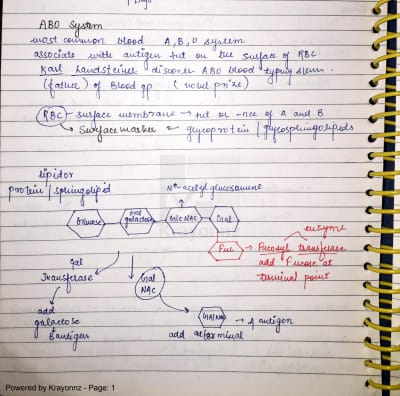 ABO System
most common blood A,B,O system
associate with antigen on the surface of RBC
Karl Landsteiner discover ABO blood typing
(father) of Blood gp (novel prize)
RBC surface membrane → of A and B
→ Surface marker glycoprotein / glycosphingolipids
lipid or
protein / sphingolipid
N-acetyl glucosamine
Glucose
galactose
GlcNAC
Gal
enzyme
Fuc → Fucosyl transferase
add Fucose at
terminal point
gal
Transferase
Gal
NAC
add
galactose
B antigen
GalNAc → A antigen
add at terminal
Powered by Krayonnz - Page: 1